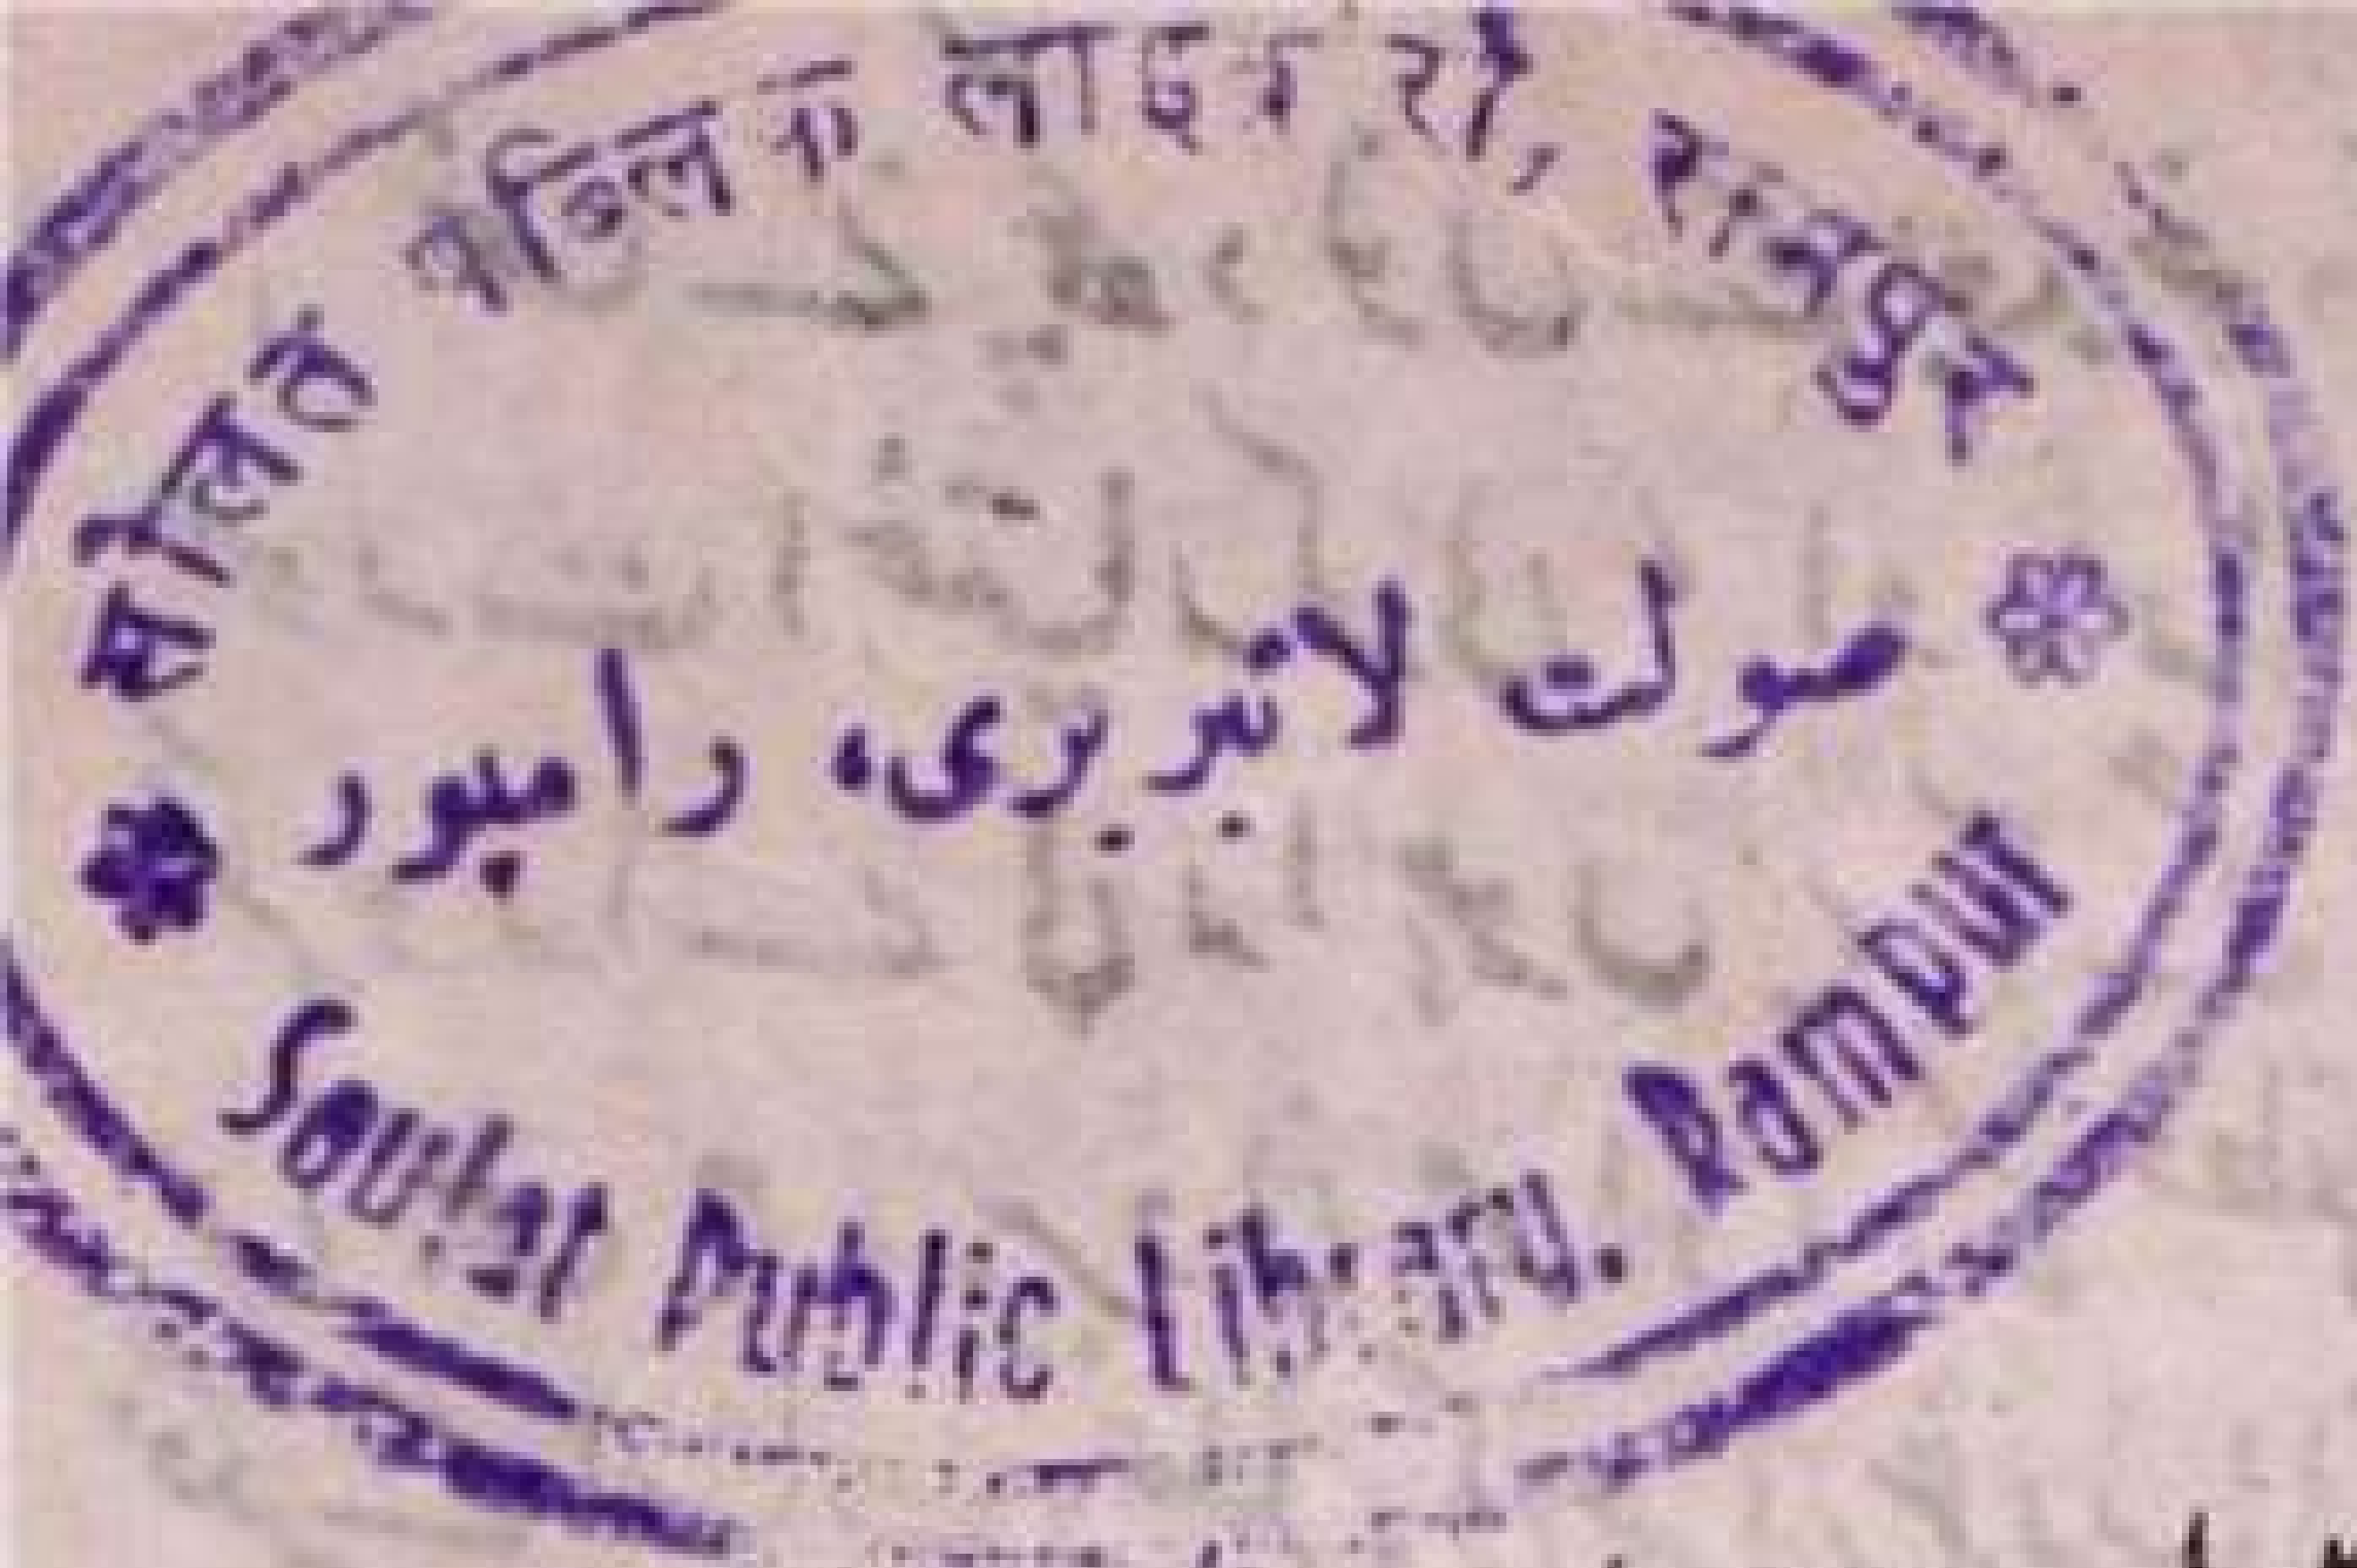 सौलत पब्लिक लाइब्रेरी, रामपुर
صولت لائبریری، رامپور
Saulat Public Library. Rampur